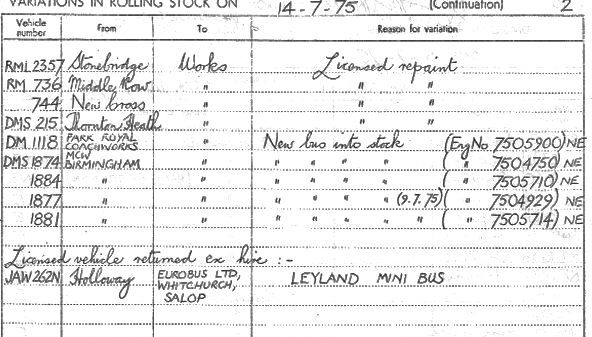 VARIATIONS IN ROLLING STOCK ON 14-7-75 (Continuation) 2
Vehicle number From To Reason for variation
RML 2357 Stonebridge Works Licensed repaint
RM 736 Middle Row " " "
744 New Cross " " "
DMS 215 Thornton Heath " " "
DM 1118 PARK ROYAL COACHWORKS " New bus into stock (Eng No 7505900) NE
DMS 1874 MCW BIRMINGHAM " " " " " ( " 7504750) NE
1884 " " " " " " ( " 7505710) NE
1877 " " " " " " (9.7.75) ( " 7504929) NE
1881 " " " " " " " ( " 7505714) NE
Licensed vehicle returned ex hire :-
JAW 262N Holloway EUROBUS LTD, WHITCHURCH, SALOP LEYLAND MINI BUS